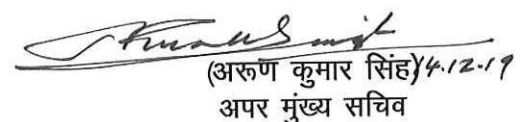 (अरूण कुमार सिंह) 4.12.19
अपर मुंख्य सचिव